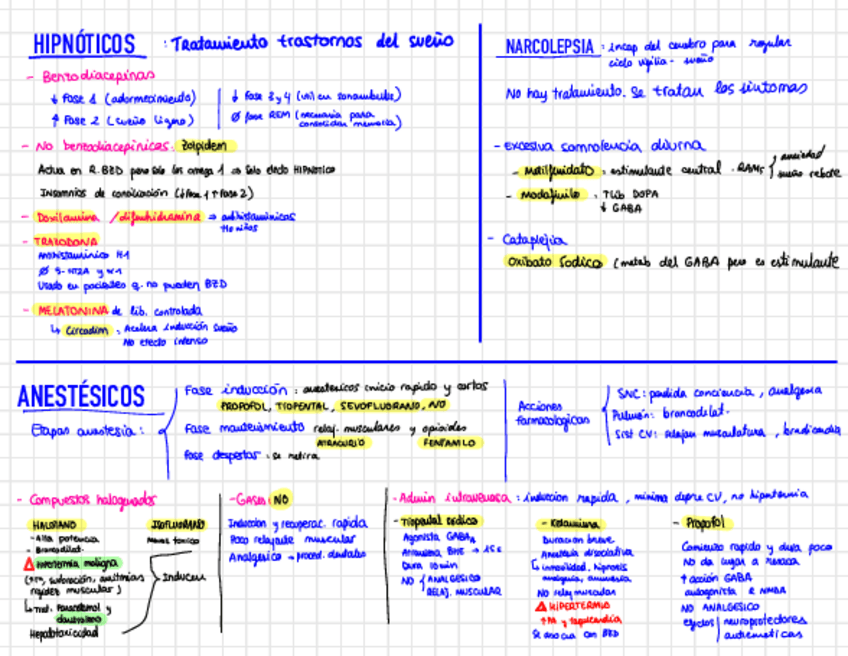 HIPNÓTICOS : Tratamiento trastornos del sueño
- Benzodiacepinas
↓ Fase 1 (adormecimiento)
↑ Fase 2 (sueño ligero)
↓ Fase 3 y 4 (útil en sonambulos)
Ø fase REM (necesaria para
consolidar memoria)
- No benzodiacepinicas: Zolpidem
Actua en R. BZD pero solo los omega 1 → solo efecto HIPNÓTICO
Insomnios de conciliación (↓Fase 1 ↑Fase 2)
- Doxilamina / difenhidramina → antihistaminicos
No niños
- TRAZODONA
Antihistaminico H1
Ø 5-HT2A y α-1
Usado en pacientes q. no pueden BZD
- MELATONINA de lib. controlada
↳ Circadin : Acelera inducción sueño
No efecto intenso
NARCOLEPSIA : incap del cerebro para regular
ciclo vigilia - sueño
No hay tratamiento. Se tratan los síntomas
- Excesiva somnolencia diurna
- Metilfenidato : estimulante central . RAMs { ansiedad
sueño rebote
- Modafinilo : ↑Lib DOPA
↓ GABA
- Cataplejia
Oxibato Sodico (metab del GABA pero es estimulante
ANESTÉSICOS
Etapas anestesia:
Fase inducción : anestesicos inicio rapido y cortos
PROPOFOL, TIOPENTAL, SEVOFLUORANO, NO
Fase mantenimiento relaj. musculares y opioides
ATRACURIO FENTANILO
Fase despertar : se retira
Acciones
farmacologicas
SNC: perdida conciencia , analgesia
Pulmon: broncodilat.
Sist CV: relajan musculatura , bradicardia
- Compuestos halogenados
HALOTANO
- Alta potencia
- Broncodilat.
⚠ Hipertermia maligna
(↑Tª, sudoración, arritmias
rigidez muscular)
↳ trat. Paracetamol y
dantroleno
Hepatotoxicidad
ISOFLUORANO
Menos toxico
Inducen
- Gases: NO
Induccion y recuperac. rapida
Poco relajante muscular
Analgesico → proced. dentales
- Admin intravenosa : induccion rapida , minima depre CV, no hipertermia
- Tiopental sódico
Agonista GABAA
Atraviesa BHE → 15s
Dura 10 min
NO { ANALGESICO
RELAJ. MUSCULAR
- Ketamina
Duracion breve
Anestesia disociativa
↳ inmovilidad, hipnosis
analgesia, amnesia
No relaj muscular
⚠ HIPERTERMIA
↑PA y taquicardia
Se asocia con BZD
- Propofol
Comienzo rapido y dura poco
No da lugar a resaca
↑ acción GABA
antagonista R NMDA
NO ANALGESICO
efectos | neuroprotectores
antiemeticos